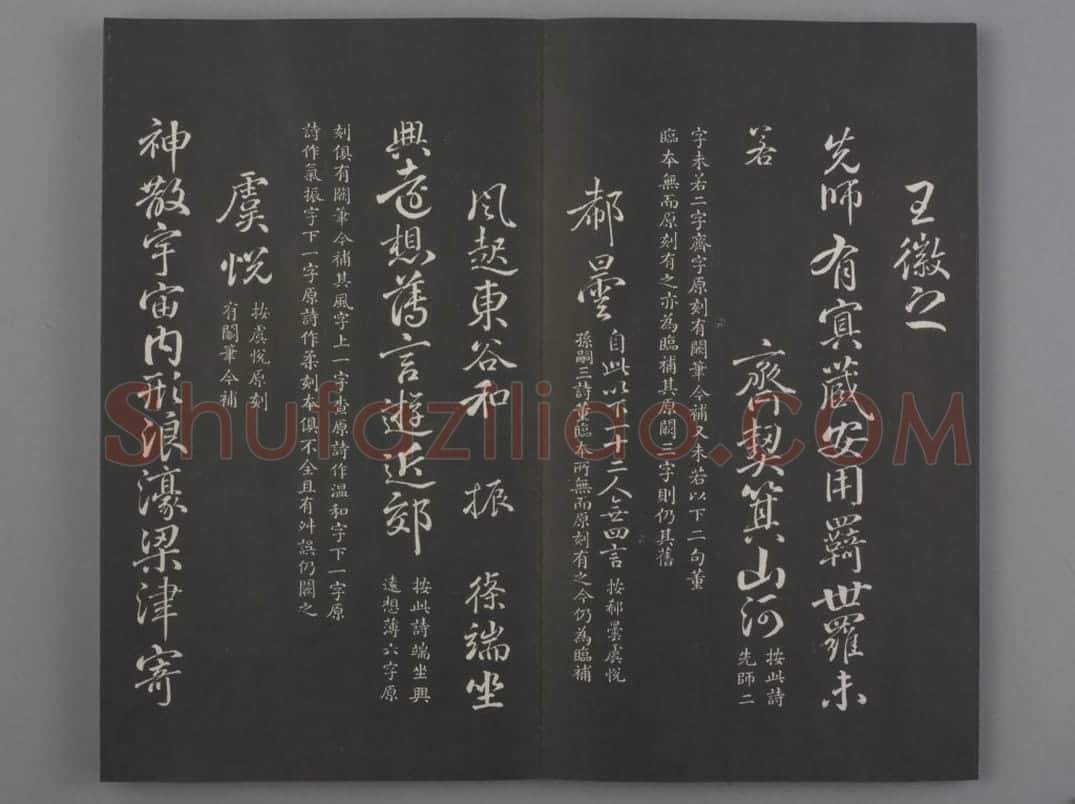 王徽之
先師有冥藏安用羇世羅未
若　　齊契箕山河
按此詩
先師二
字未若二字齊字原刻有闕筆今補又未若以下二句董
臨本無而原刻有之亦為臨補其原闕二字則仍其舊
郗曇
自此以下一十二人無四言
按郗曇虞悅
孫嗣三詩董臨本所無而原刻有之今仍為臨補
風起東谷和　振　條端坐
興遠想薄言遊近郊
按此詩端坐興
遠想薄六字原
刻俱有闕筆今補其風字上一字查原詩作溫和字下一字原
詩作氣振字下一字原詩作柔刻本俱不全且有舛誤仍闕之
虞悅
按虞悅原刻
有闕筆今補
神散宇宙內形浪濠梁津寄
Shufaziliao.COM